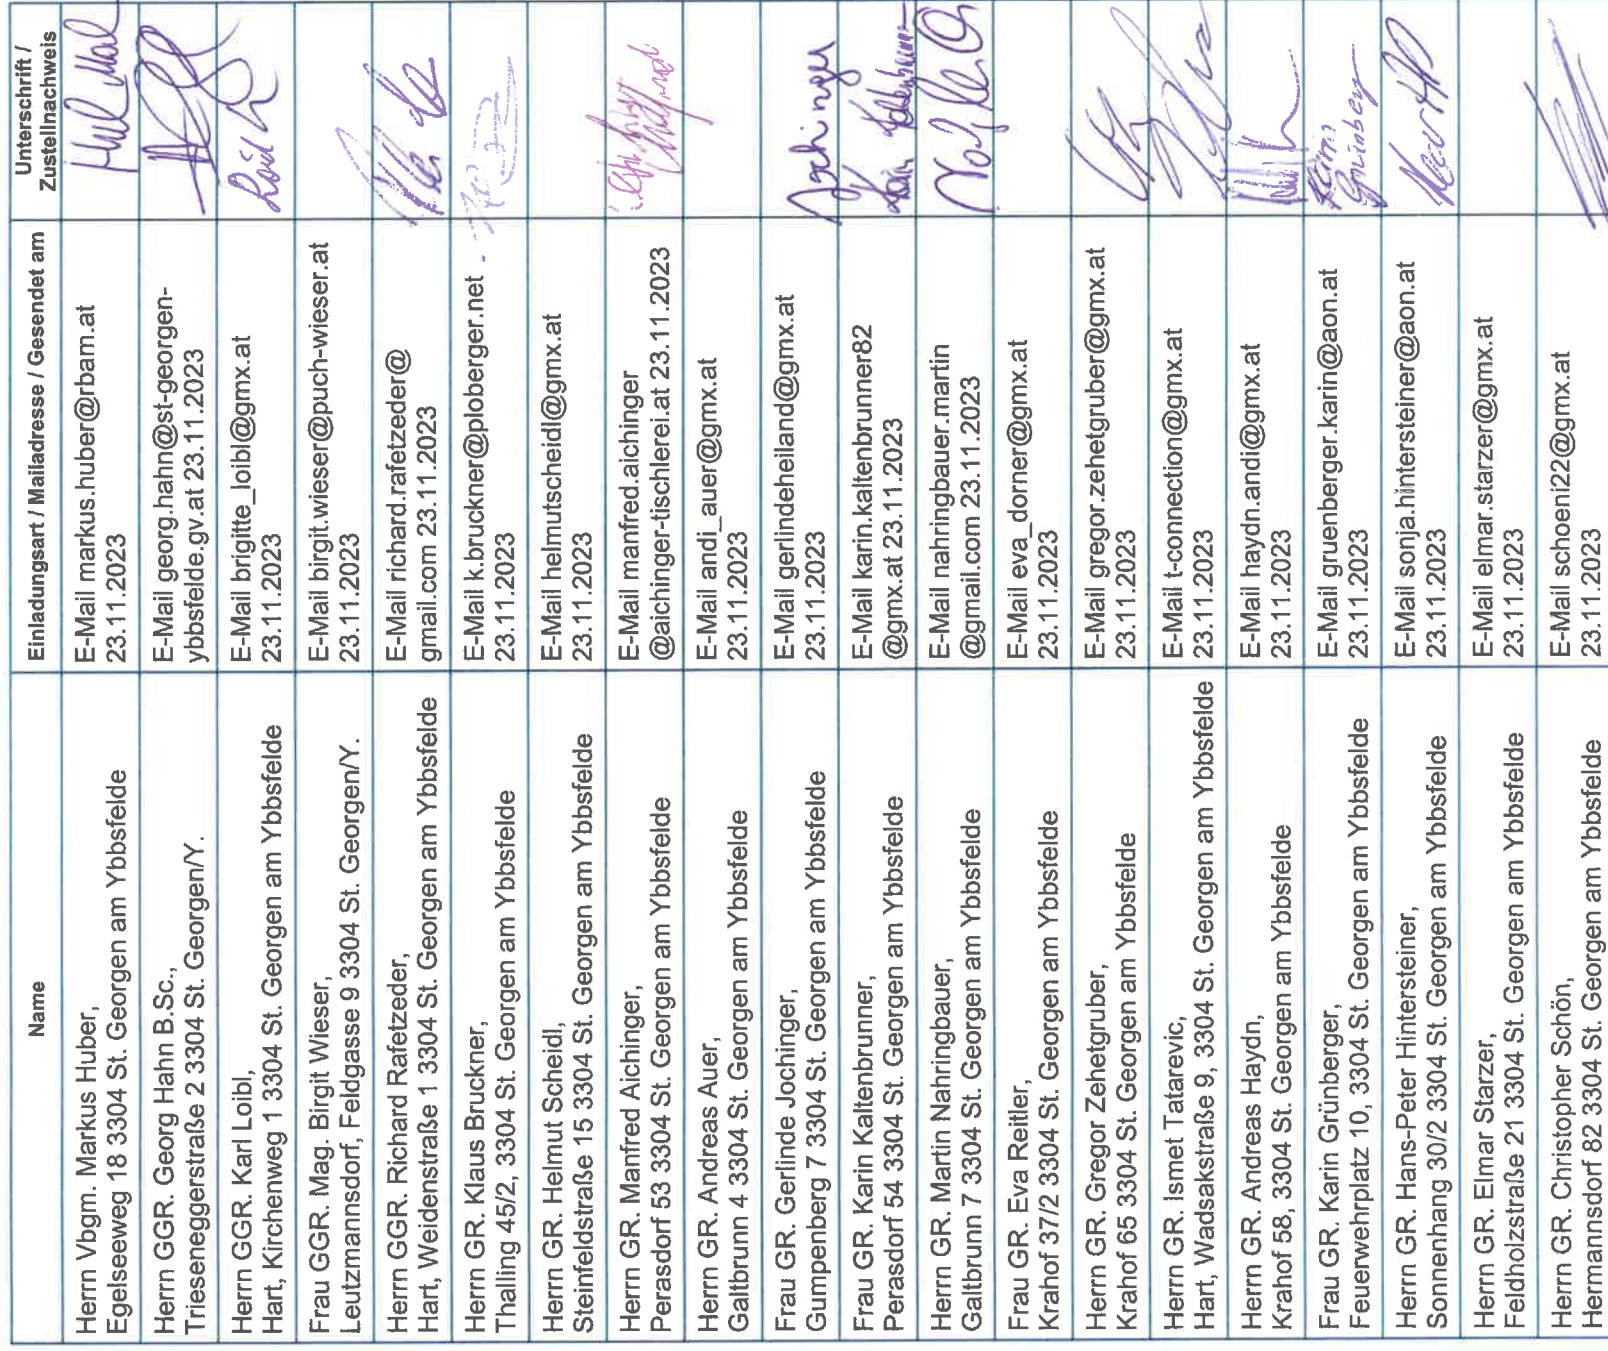 Name
Einladungsart / Mailadresse / Gesendet am
Unterschrift /
Zustellnachweis
Herrn Vbgm. Markus Huber,
Egelseeweg 18 3304 St. Georgen am Ybbsfelde
E-Mail markus.huber@rbam.at
23.11.2023
Herrn GGR. Georg Hahn B.Sc.,
Trieseneggerstraße 2 3304 St. Georgen/Y.
E-Mail georg.hahn@st-georgen-
ybbsfelde.gv.at 23.11.2023
Herrn GGR. Karl Loibl,
Hart, Kirchenweg 1 3304 St. Georgen am Ybbsfelde
E-Mail brigitte_loibl@gmx.at
23.11.2023
Frau GGR. Mag. Birgit Wieser,
Leutzmannsdorf, Feldgasse 9 3304 St. Georgen/Y.
E-Mail birgit.wieser@puch-wieser.at
23.11.2023
Herrn GGR. Richard Rafetzeder,
Hart, Weidenstraße 1 3304 St. Georgen am Ybbsfelde
E-Mail richard.rafetzeder@
gmail.com 23.11.2023
Herrn GR. Klaus Bruckner,
Thalling 45/2, 3304 St. Georgen am Ybbsfelde
E-Mail k.bruckner@ploberger.net
23.11.2023
Herrn GR. Helmut Scheidl,
Steinfeldstraße 15 3304 St. Georgen am Ybbsfelde
E-Mail helmutscheidl@gmx.at
23.11.2023
Herrn GR. Manfred Aichinger,
Perasdorf 53 3304 St. Georgen am Ybbsfelde
E-Mail manfred.aichinger
@aichinger-tischlerei.at 23.11.2023
Herrn GR. Andreas Auer,
Galtbrunn 4 3304 St. Georgen am Ybbsfelde
E-Mail andi_auer@gmx.at
23.11.2023
Frau GR. Gerlinde Jochinger,
Gumpenberg 7 3304 St. Georgen am Ybbsfelde
E-Mail gerlindeheiland@gmx.at
23.11.2023
Jochinger
Frau GR. Karin Kaltenbrunner,
Perasdorf 54 3304 St. Georgen am Ybbsfelde
E-Mail karin.kaltenbrunner82
@gmx.at 23.11.2023
Herrn GR. Martin Nahringbauer,
Galtbrunn 7 3304 St. Georgen am Ybbsfelde
E-Mail nahringbauer.martin
@gmail.com 23.11.2023
Frau GR. Eva Reitler,
Krahof 37/2 3304 St. Georgen am Ybbsfelde
E-Mail eva_dorner@gmx.at
23.11.2023
Herrn GR. Gregor Zehetgruber,
Krahof 65 3304 St. Georgen am Ybbsfelde
E-Mail gregor.zehetgruber@gmx.at
23.11.2023
Herrn GR. Ismet Tatarevic,
Hart, Wadsakstraße 9, 3304 St. Georgen am Ybbsfelde
E-Mail t-connection@gmx.at
23.11.2023
Herrn GR. Andreas Haydn,
Krahof 58, 3304 St. Georgen am Ybbsfelde
E-Mail haydn.andi@gmx.at
23.11.2023
Frau GR. Karin Grünberger,
Feuerwehrplatz 10, 3304 St. Georgen am Ybbsfelde
E-Mail gruenberger.karin@aon.at
23.11.2023
Herrn GR. Hans-Peter Hintersteiner,
Sonnenhang 30/2 3304 St. Georgen am Ybbsfelde
E-Mail sonja.hintersteiner@aon.at
23.11.2023
Herrn GR. Elmar Starzer,
Feldholzstraße 21 3304 St. Georgen am Ybbsfelde
E-Mail elmar.starzer@gmx.at
23.11.2023
Herrn GR. Christopher Schön,
Hermannsdorf 82 3304 St. Georgen am Ybbsfelde
E-Mail schoeni22@gmx.at
23.11.2023